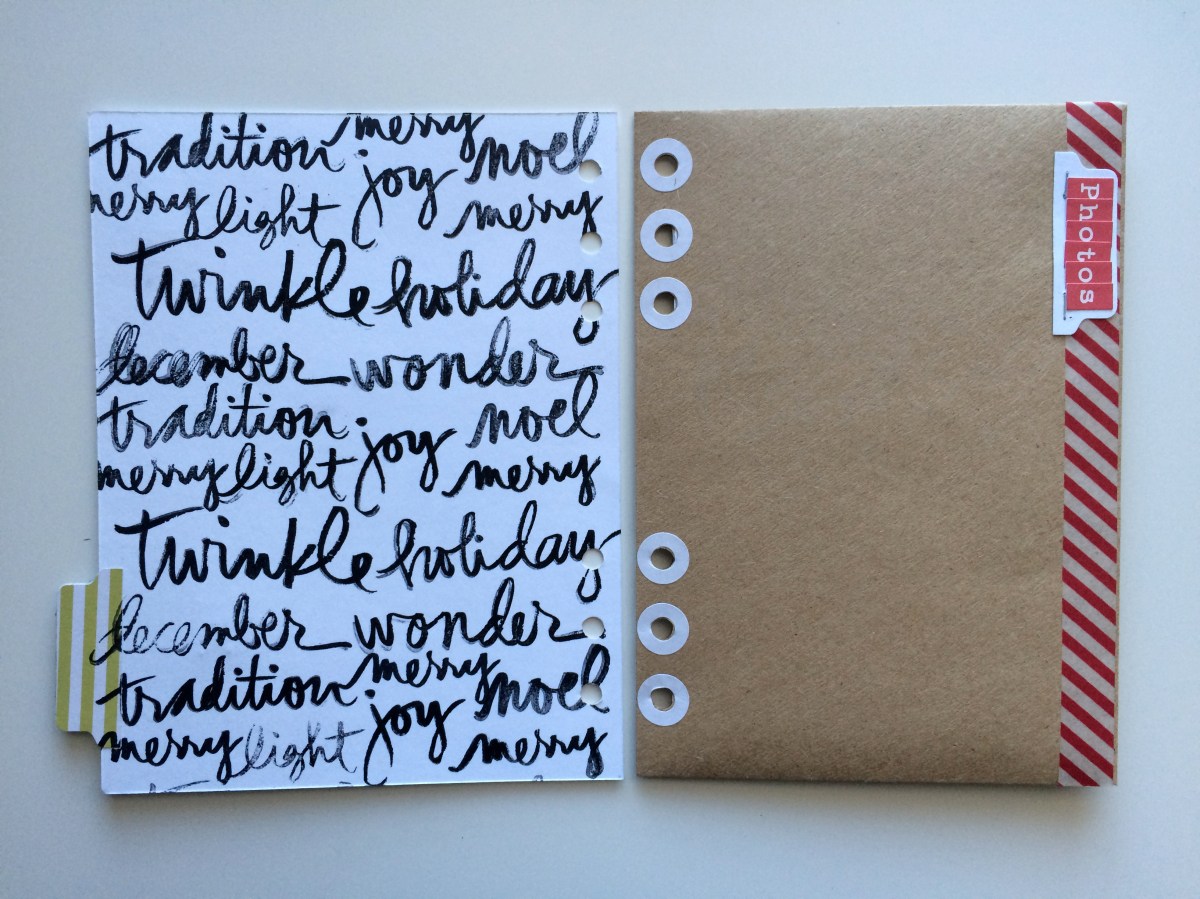 tradition merry noel
merry light joy merry
twinkle holiday
december wonder
tradition joy noel
merry light merry
twinkle holiday
december wonder
tradition merry noel
merry light joy merry
Photos